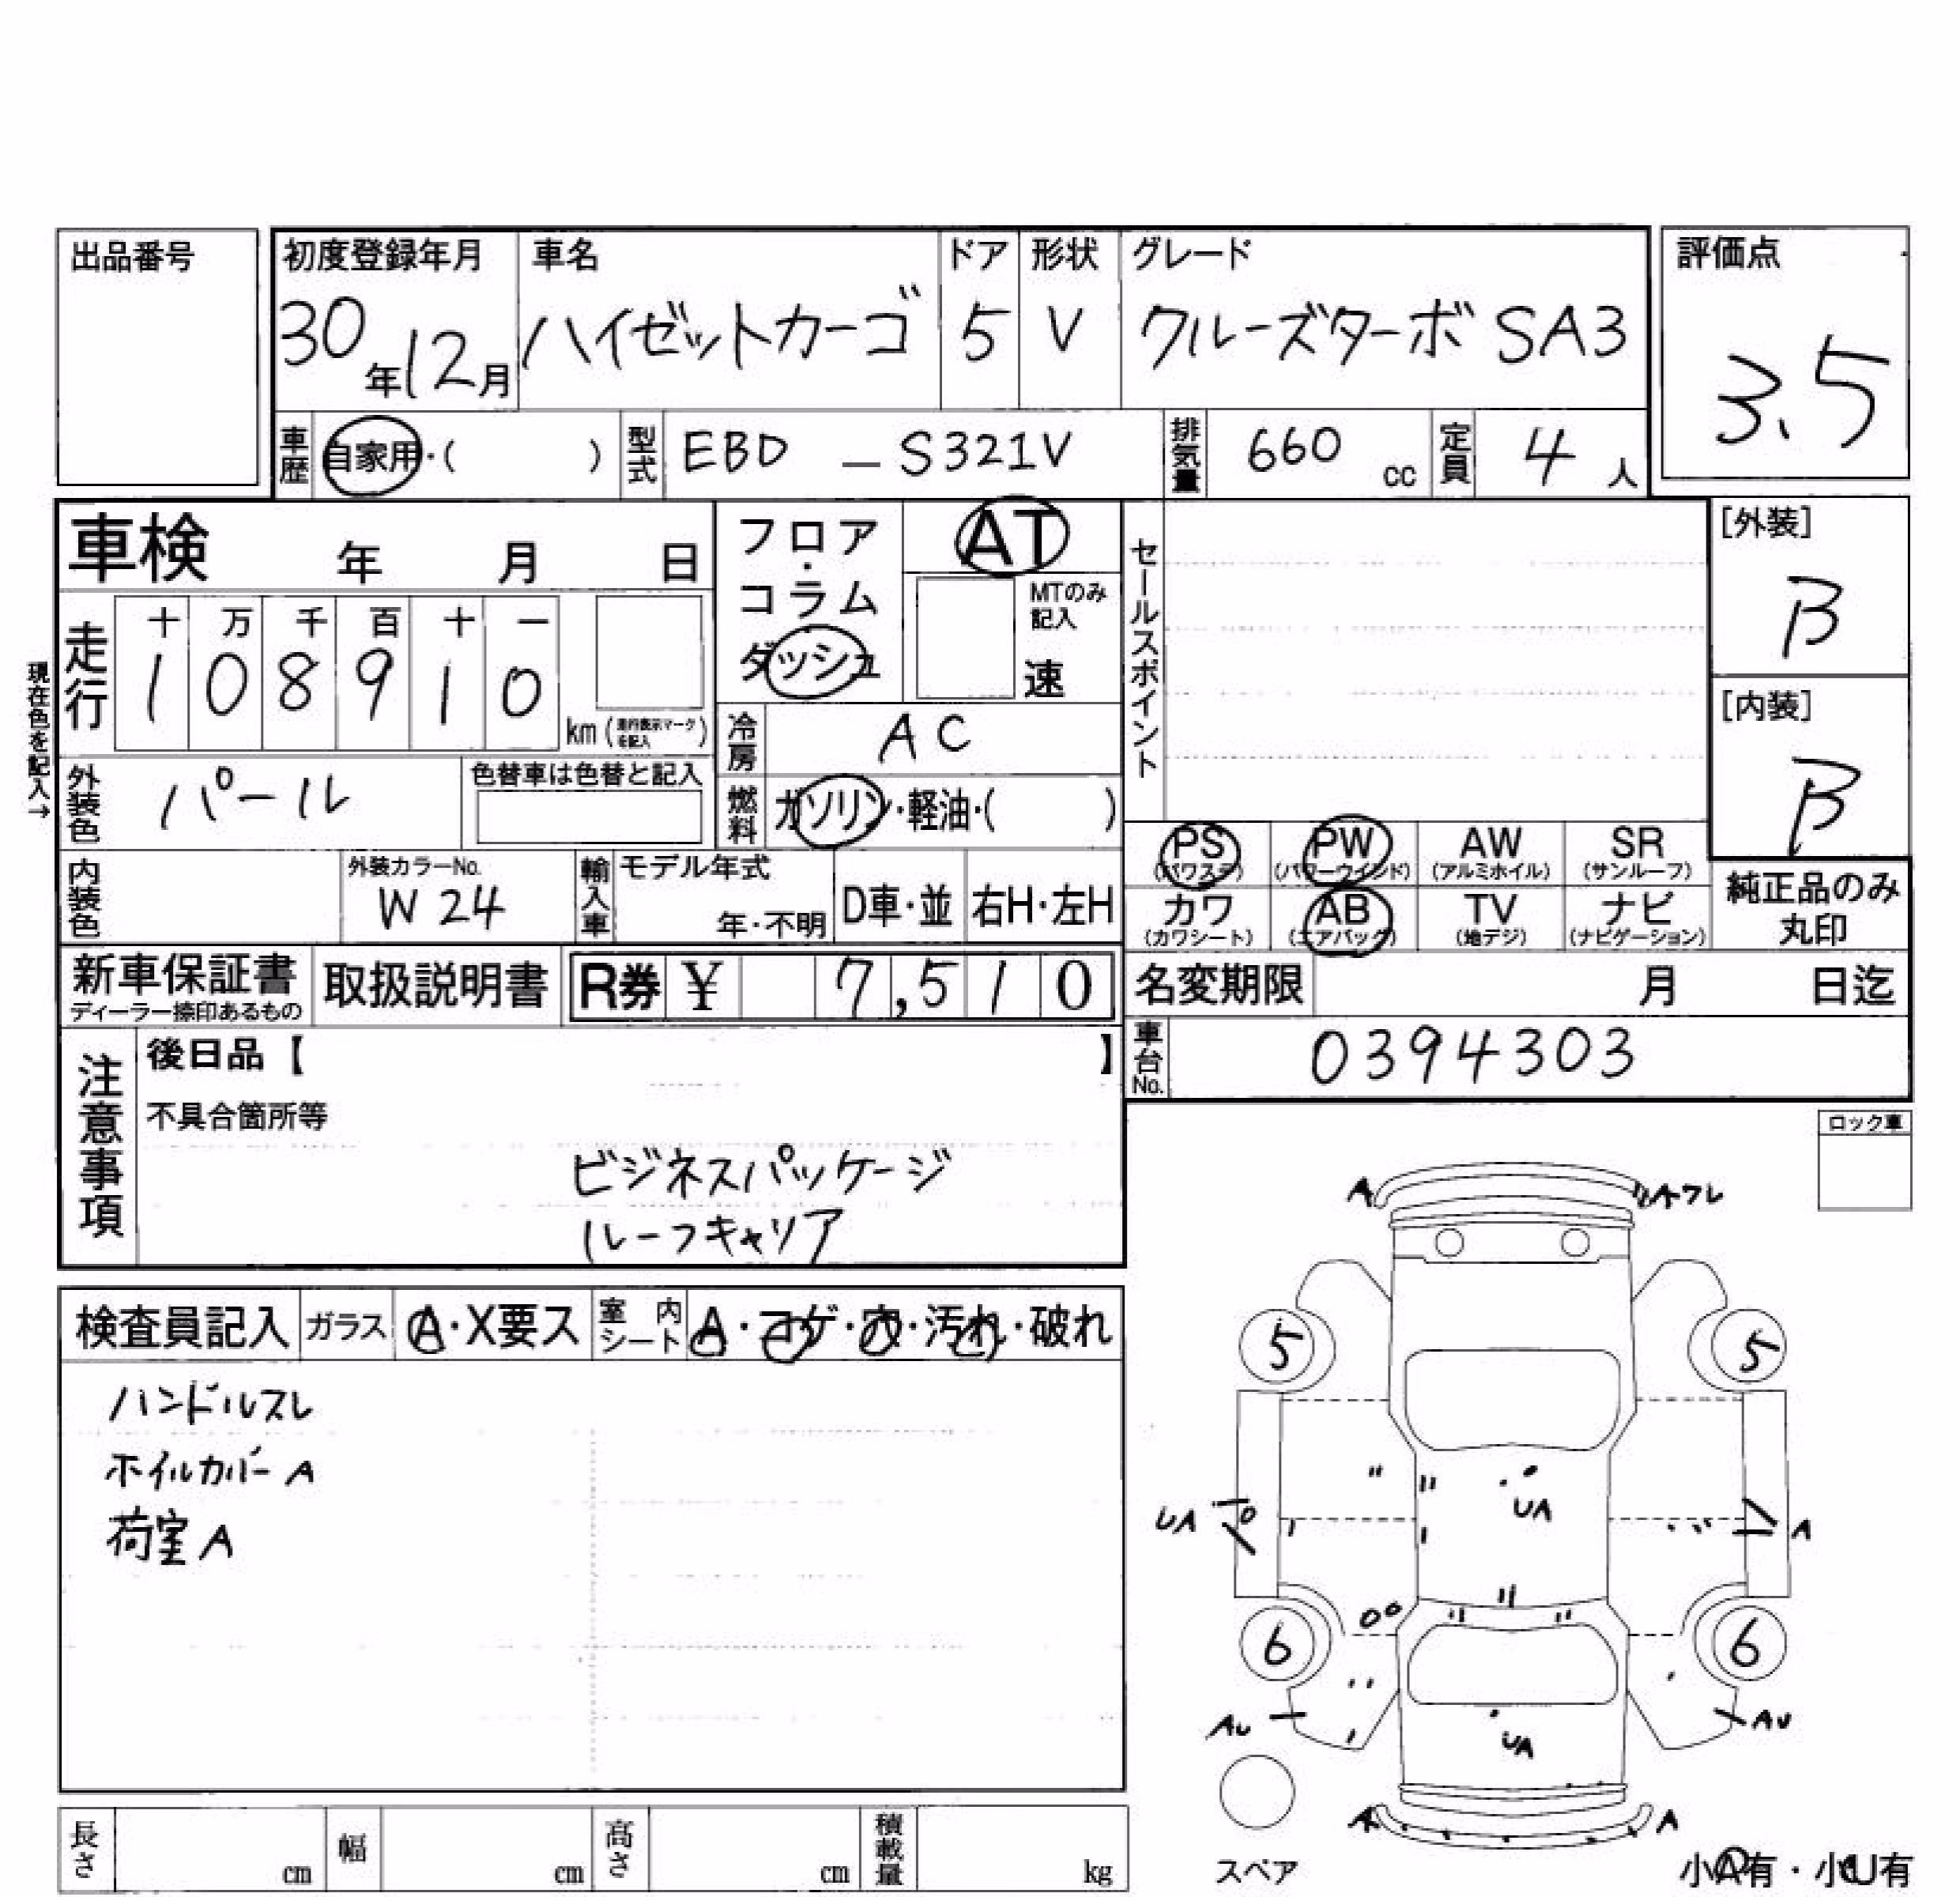 出品番号
初度登録年月 車名 ドア 形状 グレード 評価点
30年12月 ハイゼットカーゴ 5 V クルーズターボ SA3 3.5
車歴 自家用・( ) 型式 EBD - S321V 排気量 660 cc 定員 4 人
車検 年 月 日
フロア・コラム ダッシュ
AT
MTのみ記入
速
セールスポイント
[外装]
B
[内装]
B
現在色を記入→
走行 十 万 千 百 十 一
1 0 8 9 1 0 km (走行表示マークを記入)
冷房 AC
外装色 パール 色替車は色替と記入
燃料 ガソリン・軽油・( )
内装色 外装カラーNo. W24
輸入車 モデル年式 年・不明 D車・並 右H・左H
PS (パワステ) PW (パワーウインド) AW (アルミホイル) SR (サンルーフ)
カワ (カワシート) AB (エアバッグ) TV (地デジ) ナビ (ナビゲーション)
純正品のみ丸印
新車保証書 ディーラー捺印あるもの 取扱説明書 R券 ¥ 7,510
名変期限 月 日迄
車台No. 0394303
注意事項
後日品【 】
不具合箇所等
ビジネスパッケージ
ルーフキャリア
ロック車
検査員記入 ガラス A・X要ス 室内シート A・コゲ・穴・汚れ・破れ
ハンドルスレ
ホイルカバーA
荷室A
A Aワレ
5 5
UA
UA A
6 6
AU AU
UA
A A
スペア
小A有・小U有
長さ cm 幅 cm 高さ cm 積載量 kg